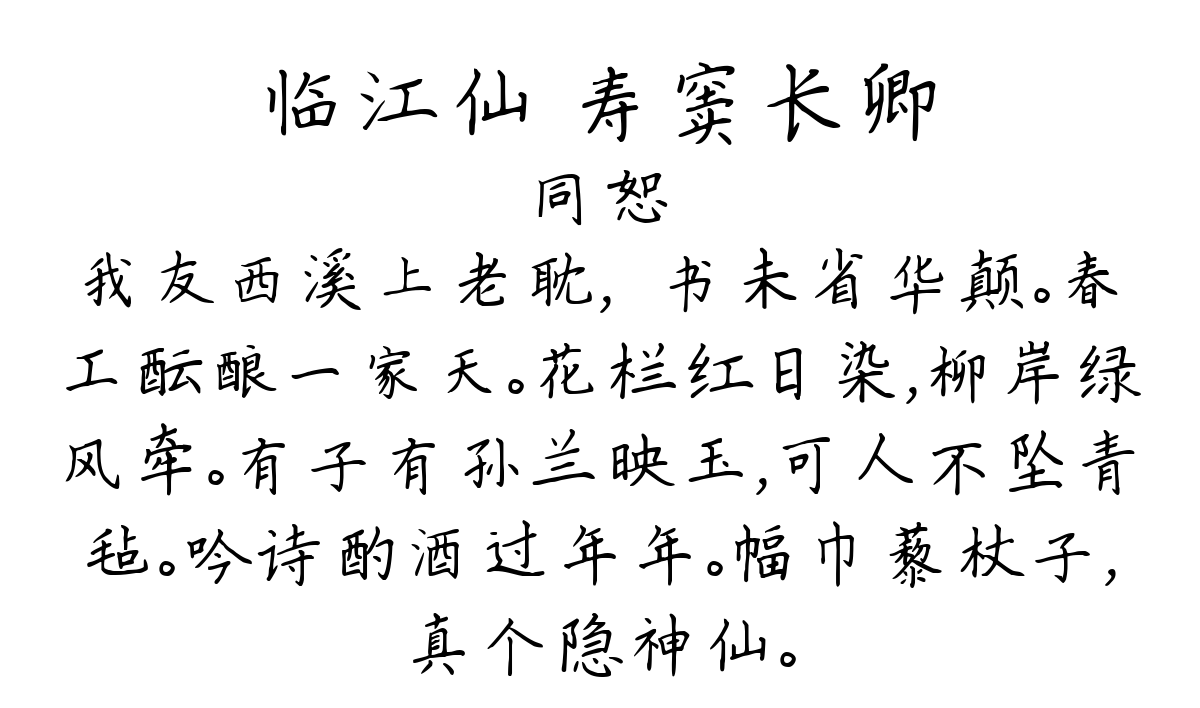 临江仙 寿窦长卿
同恕
我友西溪上老耽，书未省华颠。春
工酝酿一家天。花栏红日染，柳岸绿
风牵。有子有孙兰映玉，可人不坠青
毡。吟诗酌酒过年年。幅巾藜杖子，
真个隐神仙。